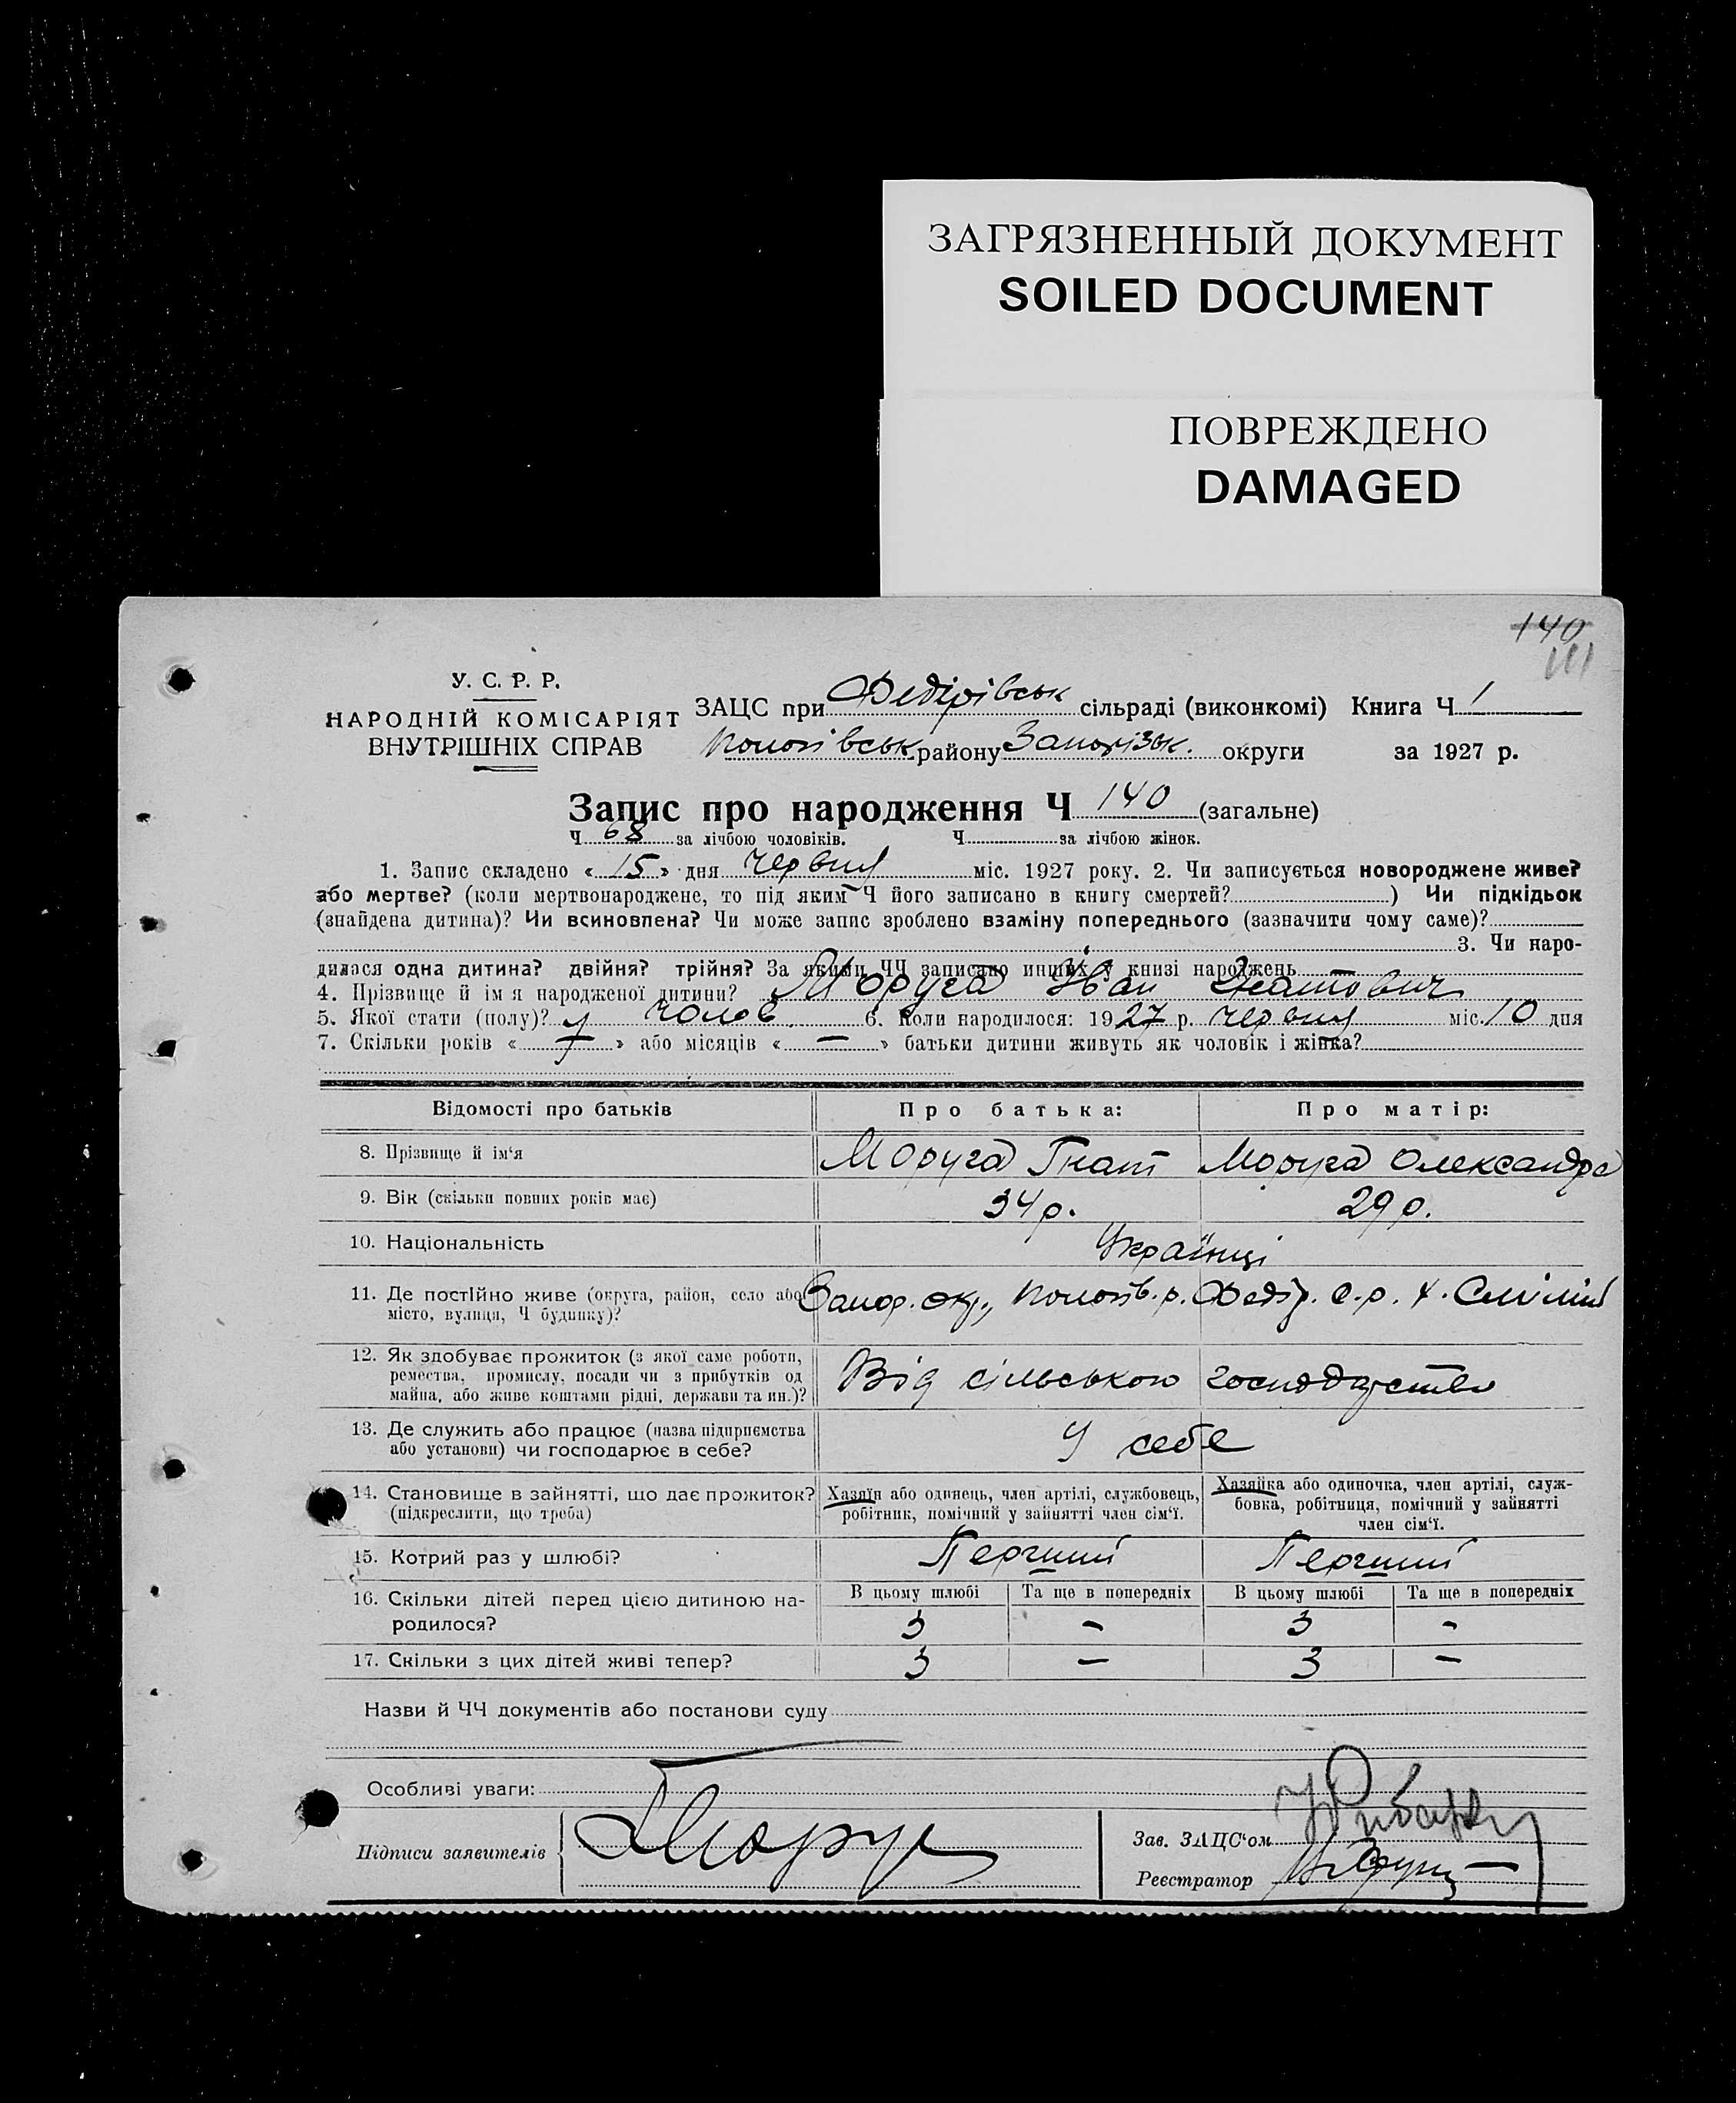 ЗАГРЯЗНЕННЫЙ ДОКУМЕНТ
SOILED DOCUMENT
ПОВРЕЖДЕНО
DAMAGED
140
У. С. Р. Р.
НАРОДНІЙ КОМІСАРІЯТ
ВНУТРІШНІХ СПРАВ
ЗАЦС при Федірівськ сільраді (виконкомі) Книга Ч 1
Пологівськ району Запорізьк. округи за 1927 р.
Запис про народження Ч 140 (загальне)
Ч 68 за лічбою чоловіків. Ч за лічбою жінок.
1. Запис складено « 15 » дня червня міс. 1927 року. 2. Чи записується новороджене живе?
або мертве? (коли мертвонароджене, то під яким Ч його записано в книгу смертей? ) Чи підкідьок
(знайдена дитина)? Чи всиновлена? Чи може запис зроблено взаміну попереднього (зазначити чому саме)?
3. Чи наро-
дилася одна дитина? двійня? трійня? За якими ЧЧ записано инших у книзі народжень
4. Прізвище й ім я народженої дитини? Моруга Іван Гнатович
5. Якої стати (полу)? чолов 6. Коли народилося: 1927 р. червня міс. 10 дня
7. Скільки років « 7 » або місяців « — » батьки дитини живуть як чоловік і жінка?
Відомості про батьків Про батька: Про матір:
8. Прізвище й ім'я Моруга Гнат Моруга Олександра
9. Вік (скільки повних років має) 34 р. 29 р.
10. Національність Українці
11. Де постійно живе (округа, район, село або Запор. окр., Пологів. р. Федір. с.р. х.
місто, вулиця, Ч будинку)?
12. Як здобуває прожиток (з якої саме роботи,
ремества, промислу, посади чи з прибутків од
майна, або живе коштами рідні, держави та ин.)? Від сільського господарства
13. Де служить або працює (назва підприємства
або установи) чи господарює в себе? У себе
14. Становище в зайнятті, що дає прожиток?
(підкреслити, що треба)
Хазяїн або одинець, член артілі, службовець,
робітник, помічний у зайнятті член сім'ї.
Хазяйка або одиночка, член артілі, служ-
бовка, робітниця, помічний у зайнятті
член сім'ї.
15. Котрий раз у шлюбі? Перший Перший
В цьому шлюбі Та ще в попередніх В цьому шлюбі Та ще в попередніх
16. Скільки дітей перед цією дитиною на-
родилося? 3 - 3 -
17. Скільки з цих дітей живі тепер? 3 — 3 —
Назви й ЧЧ документів або постанови суду
Особливі уваги:
Підписи заявителів
Зав. ЗАЦС'ом
Реєстратор